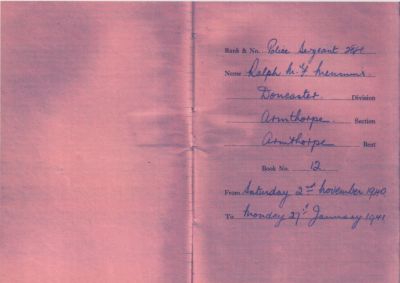 Rank & No. Police Sergeant
Name Ralph M. Y.
Doncaster Division
Armthorpe Section
Armthorpe Beat
Book No. 12
From Saturday 2nd November 1940
To Monday 27th January 1941